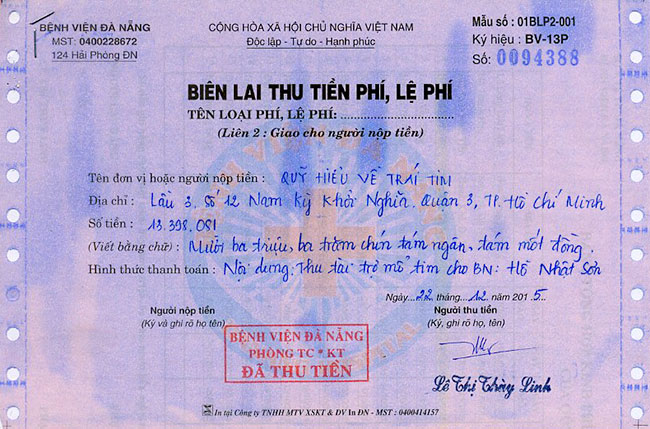 BỆNH VIỆN ĐÀ NẴNG
MST: 0400228672
124 Hải Phòng ĐN
CỘNG HÒA XÃ HỘI CHỦ NGHĨA VIỆT NAM
Độc lập - Tự do - Hạnh phúc
Mẫu số : 01BLP2-001
Ký hiệu : BV-13P
Số: 0094388
BIÊN LAI THU TIỀN PHÍ, LỆ PHÍ
TÊN LOẠI PHÍ, LỆ PHÍ:
(Liên 2 : Giao cho người nộp tiền)
Tên đơn vị hoặc người nộp tiền : QUỸ HIỂU VỀ TRÁI TIM
Địa chỉ : Lầu 3, Số 12 Nam Kỳ Khởi Nghĩa. Quận 3, TP. Hồ Chí Minh
Số tiền : 13.398.081
(Viết bằng chữ) : Mười ba triệu, ba trăm chín tám ngàn, tám mốt đồng.
Hình thức thanh toán : Nội dung: Thu tài trợ mổ tim cho BN: Hồ Nhật Sơn
Ngày...22 tháng...12...năm 2015...
Người nộp tiền
(Ký và ghi rõ họ tên)
Người thu tiền
(Ký và ghi rõ họ, tên)
BỆNH VIỆN ĐÀ NẴNG
PHÒNG TC * KT
ĐÃ THU TIỀN
Lê Thị Thùy Linh
In tại Công ty TNHH MTV XSKT & DV In ĐN - MST : 0400414157